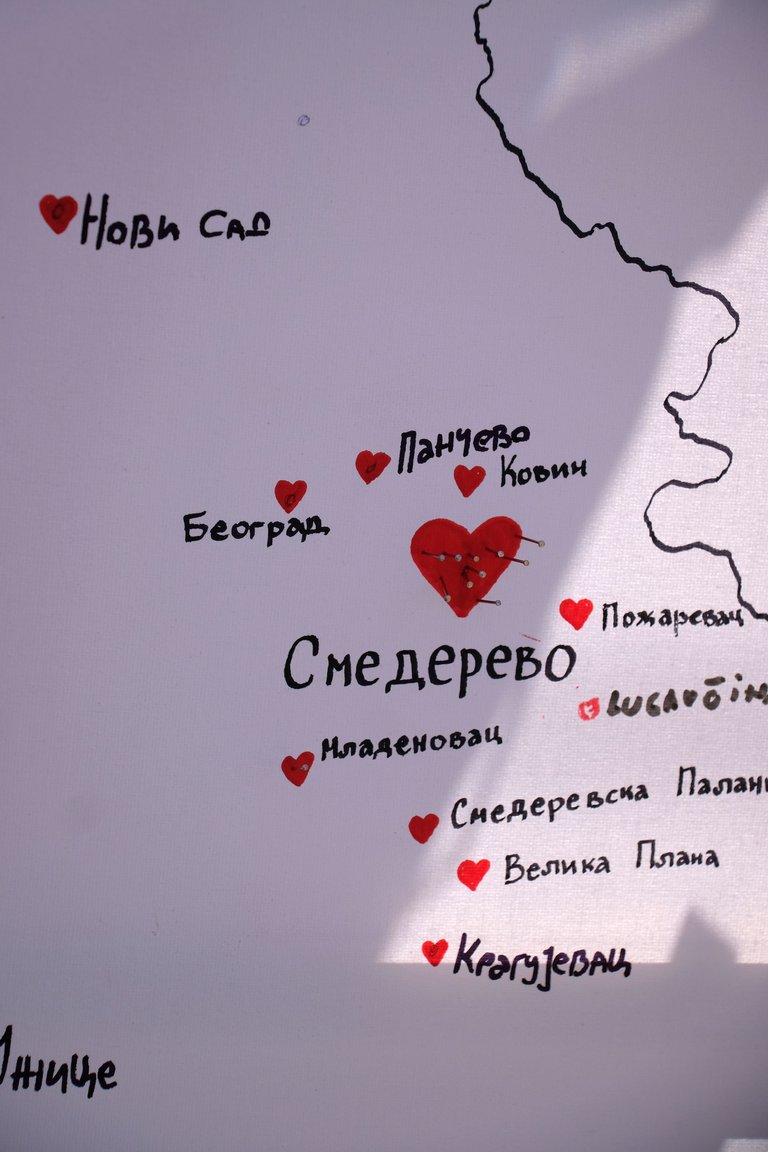 Нови Сад
Панчево
Ковин
Београд
Пожаревац
Смедерево
Младеновац
Смедеревска
Велика Плана
Крагујевац